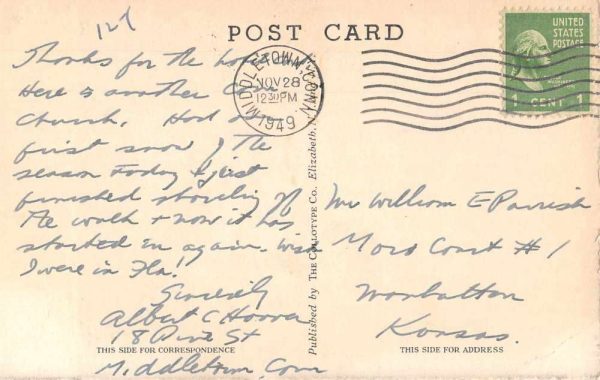 127
POST CARD
MIDDLETOWN, CONN.
NOV 28
12 30 PM
1949
UNITED
STATES
POSTAGE
1 CENT 1
Thanks for the
Here is another Conn
Church. Had our
first snow of the
season today & just
finished shoveling off
the walk & now it has
started in again. Wish
I were in Fla!
Sincerely
Albert C Hoover
18 Pine St
Middletown, Conn
THIS SIDE FOR CORRESPONDENCE
Published by THE COLLOTYPE CO., Elizabeth, N. J.
Mr William E Parrish
Moro Court # 1
Manhattan
Kansas.
THIS SIDE FOR ADDRESS